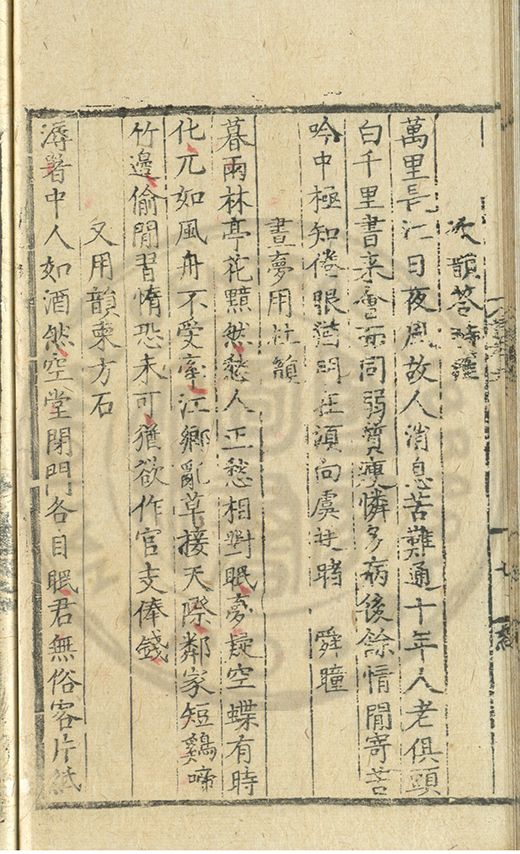 次韻答
萬里長江日夜風故人消息苦難通十年人老俱頭
白千里書來會面同弱質痩憐多病後餘情閒寄苦
吟中極知倦眼當明在須向虞廷睹舜瞳
晝夢用杜韻
暮雨林亭花黯然愁人正愁相對眠夢旋空蝶有時
化兀如風舟不受牽江鄉亂草接天際鄰家短鷄啼
竹邊偷閒習惰恐未可猶欲作官支俸錢
又用韻柬方石
溽暑中人如酒然空堂閉門各自眠君無俗客片紙